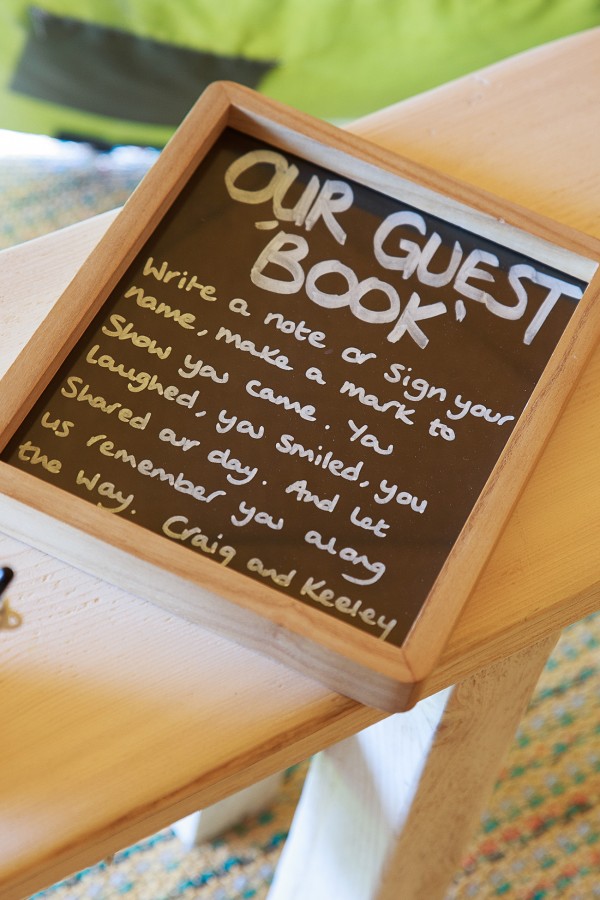 OUR GUEST
'BOOK'
Write a note or sign your
name, make a mark to
Show you came. You
laughed, you smiled, you
Shared our day. And let
us remember you along
the way. Craig and Keeley